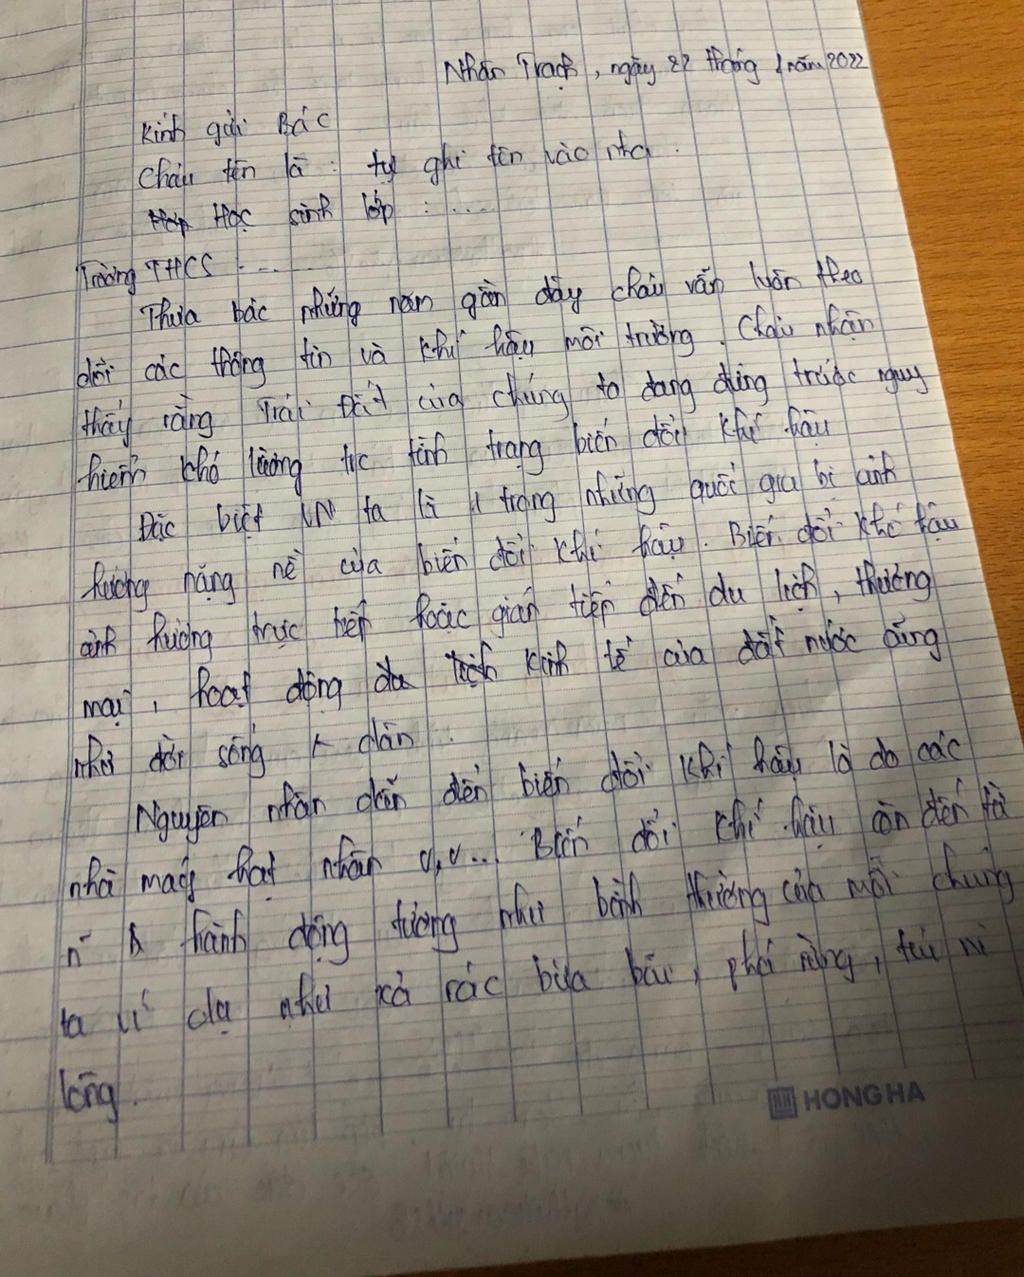 Nhân Trạch, ngày 22 tháng 1 năm 2022
Kính gửi Bác
Cháu tên là : tự ghi tên vào nha.
Học sinh lớp : ....
Trường THCS ....
Thưa bác những năm gần đây cháu vẫn luôn theo
dõi các thông tin về khí hậu môi trường. Cháu nhận
thấy rằng Trái Đất của chúng ta đang đứng trước nguy
hiểm khó lường tức tình trạng biến đổi khí hậu
Đặc biệt VN ta là 1 trong những quốc gia bị ảnh
hưởng nặng nề của biến đổi khí hậu. Biến đổi khí hậu
ảnh hưởng trực tiếp hoặc gián tiếp đến du lịch, thương
mại, hoạt động kinh tế của đất nước cũng
như đời sống dân.
Nguyên nhân dẫn đến biến đổi khí hậu là do các
nhà máy hạt nhân v,v... Biến đổi khí hậu còn đến từ
n~ hành động tưởng như bình thường của mỗi chúng
ta ví dụ như xả rác bừa bãi, phá rừng, túi ni
lông.
HONG HA